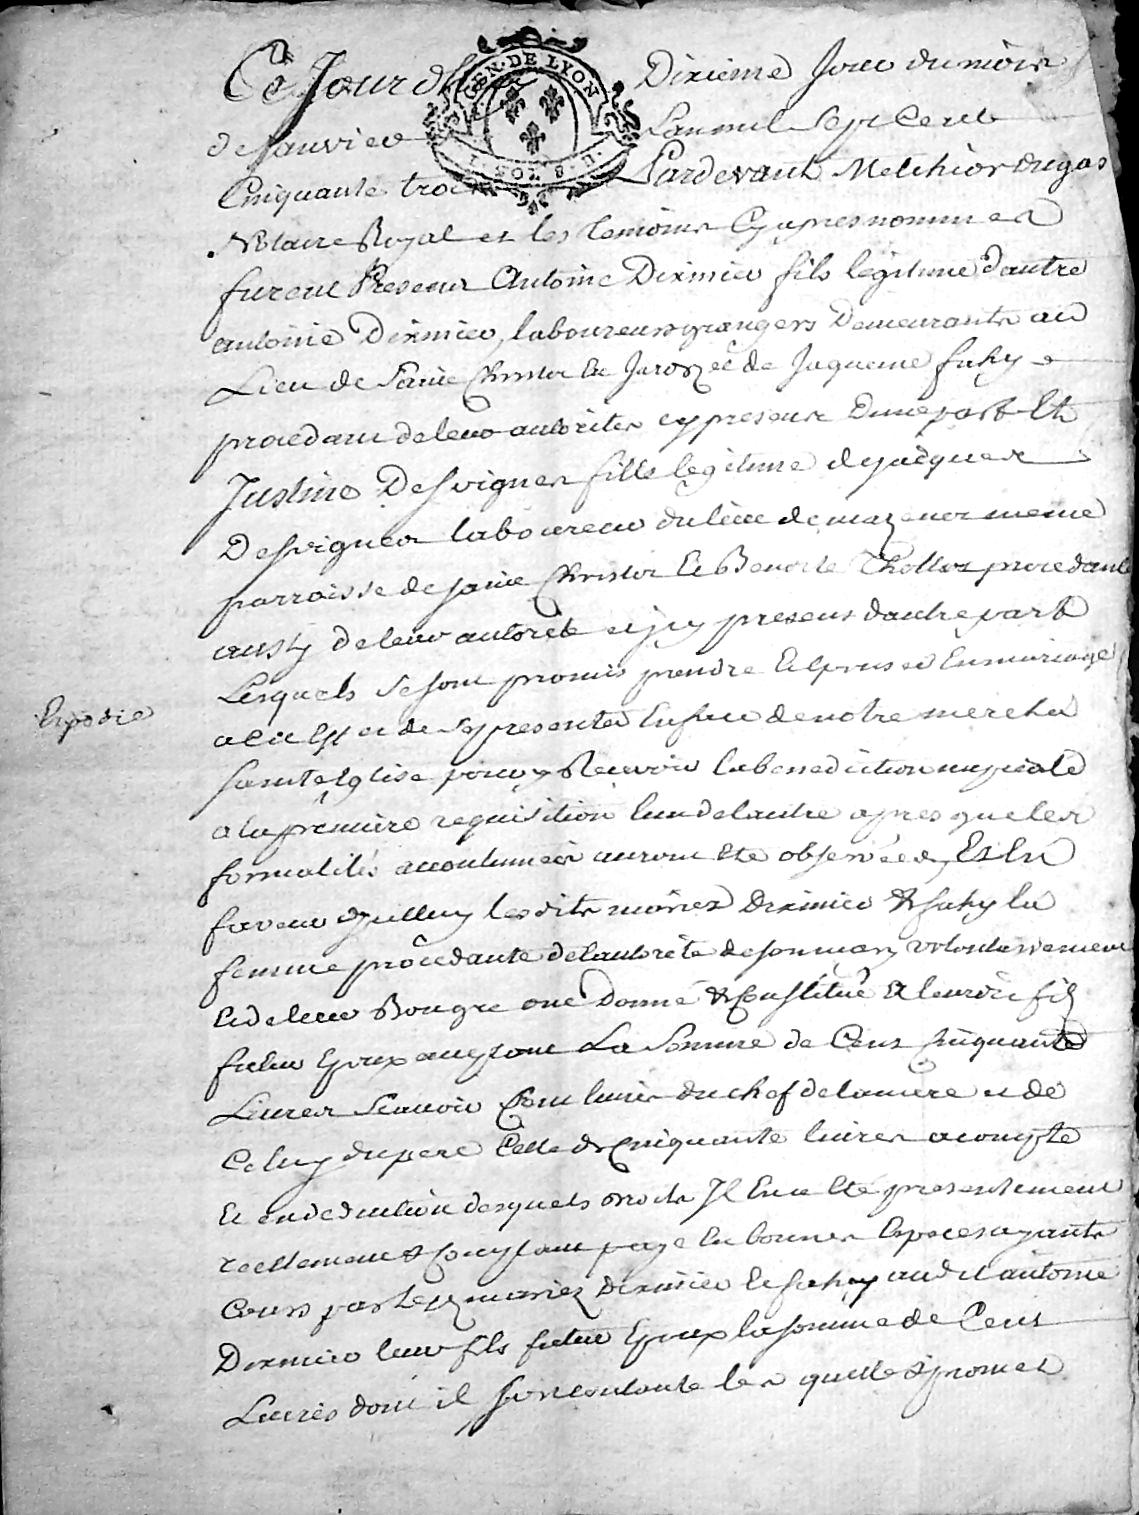 Ce Jourdhuy Dixieme Jour du mois
GEN. DE LYON
de Janvier Lan mil Sept Cent
Cinquante trois Pardevant Melchior Dugas
Notaire Royal et les temoins Cy apres nommes
furent Presents Antoine Dirmier fils legitime d'autre
antoine Dirmier, laboureurs grangers Demeurants au
Lieu de Saint Christo de Jaqueme fahy
procedant de leur autorites cy presents Dune part Et
Justine Desvignes fille legitime de Jacques
Desvignes laboureur du lieu de mazenor meme
parroisse de Saint Christo et Benoite Thollot procedante
aussy de leur autorité icy presents dautre part
Lesquels se sont promis prendre et Epouser en mariage
Expedié
a cet Effet de se presenter en face de notre mere la
Sainte Eglise pour y Recevoir la benediction nuptiale
a la premiere requisition lun de lautre apres que les
formalités accoutumées auront Eté observées, Et En
faveur dycelluy lesdits mariez Dirmier & fahy la
femme procedante de lautorité de son mary volontairement
et de leur Bongre ont Donné & Constitué a leurdit fils
futur Epoux acceptant La Somme de Cent Cinquante
Livres Scavoir Cent livres du chef de la mere et de
Celuy du pere Celle de Cinquante livres acompte
Et en deduction desquels droits Il En a Eté presentement
reellement & Comptant payé En bonnes Especes ayants
Cours par lesd mariez Dirmier et fahy audit antoine
Dirmier leur fils futur Epoux la somme de Cent
Livres dont il sen contente les quitte & promet